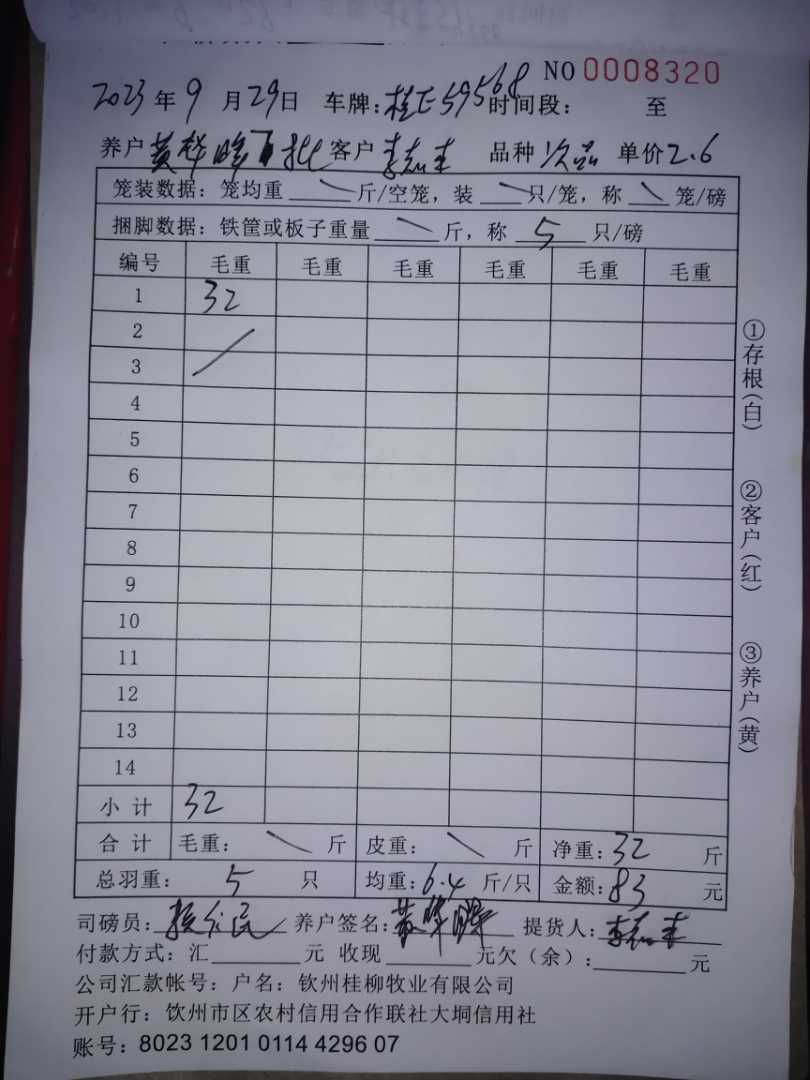 NO 0008320
2023年9月29日 车牌:桂E59568 时间段: 至
养户 黄 批 客户 李志 品种 次品 单价 2.6
笼装数据:笼均重 \ 斤/空笼,装 \ 只/笼,称 \ 笼/磅
捆脚数据:铁筐或板子重量 \ 斤,称 5 只/磅
编号 毛重 毛重 毛重 毛重 毛重 毛重
1 32
2
3
4
5
6
7
8
9
10
11
12
13
14
小计 32
合计 毛重: \ 斤 皮重: \ 斤 净重:32 斤
总羽重: 5 只 均重:6.4 斤/只 金额:83 元
司磅员: 民 养户签名:黄 提货人:李志
付款方式:汇 元 收现 元欠(余): 元
公司汇款帐号:户名:钦州桂柳牧业有限公司
开户行:钦州市区农村信用合作联社大垌信用社
账号:8023 1201 0114 4296 07
①存根(白)
②客户(红)
③养户(黄)